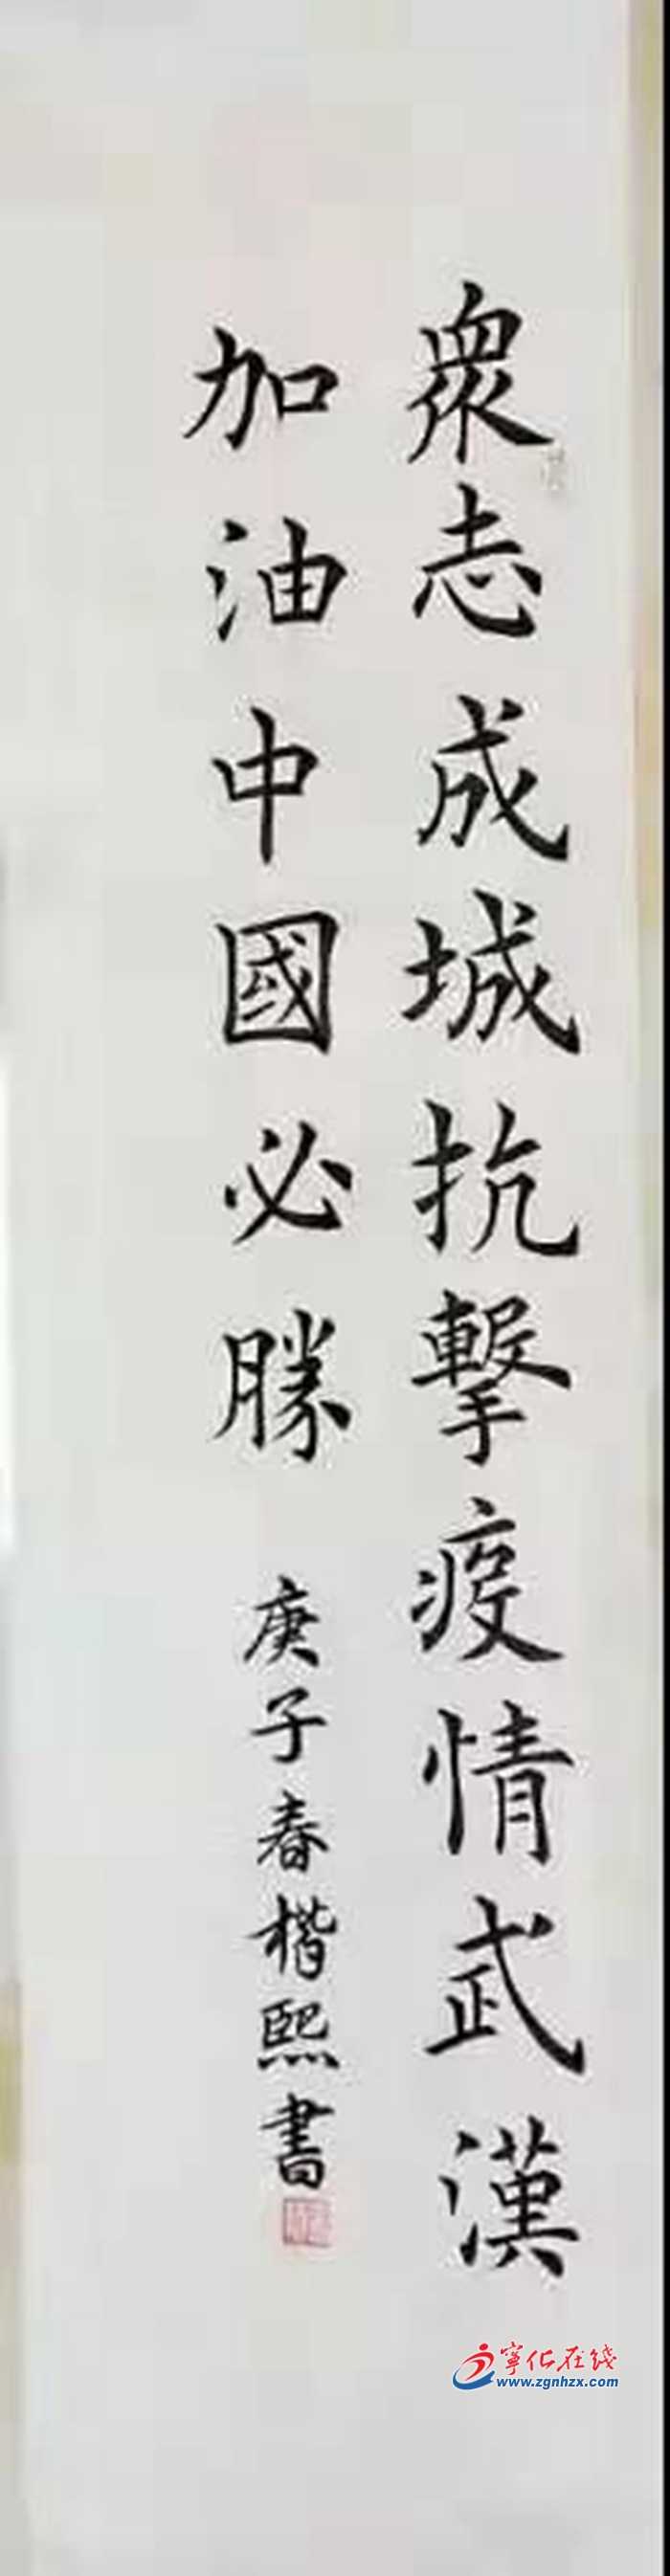 眾志成城抗擊疫情武漢
加油中國必勝
庚子春楷熙書
寧化在线
www.zgnhzx.com